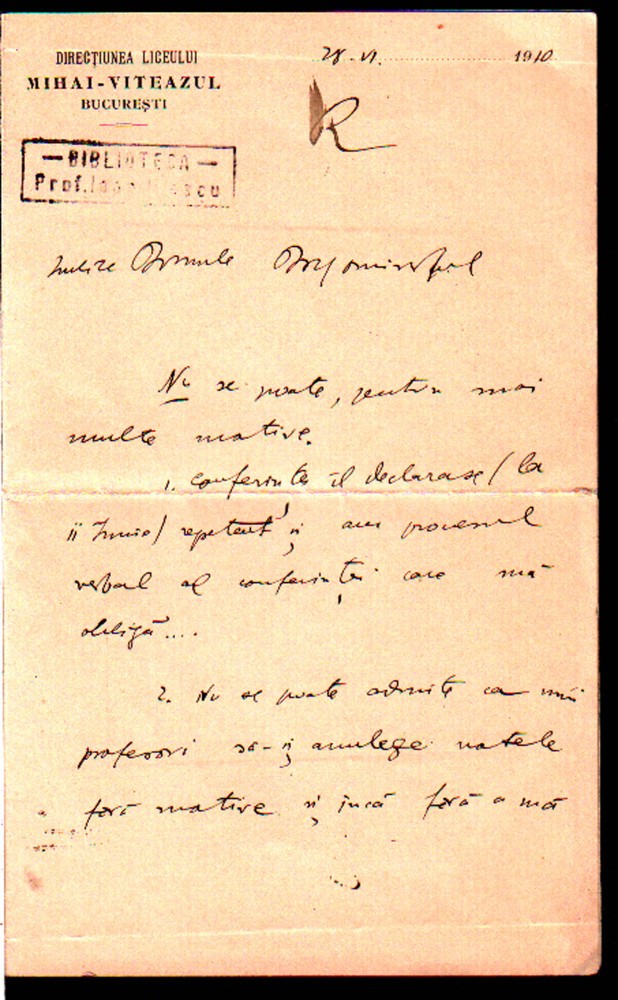 DIRECȚIUNEA LICEULUI
MIHAI-VITEAZUL
BUCUREȘTI
28-VI. 1910
R
— BIBLIOTECA —
Prof. Ioan
Iubite Domnule
Nu se poate, pentru mai
multe motive.
1. conferința îl declarase / la
11 Junie / repetent și am procesul
verbal al conferinței care mă
obligă....
2. Nu se poate admite ca unii
profesori să-și anulege notele
fără motive și încă fără a mă